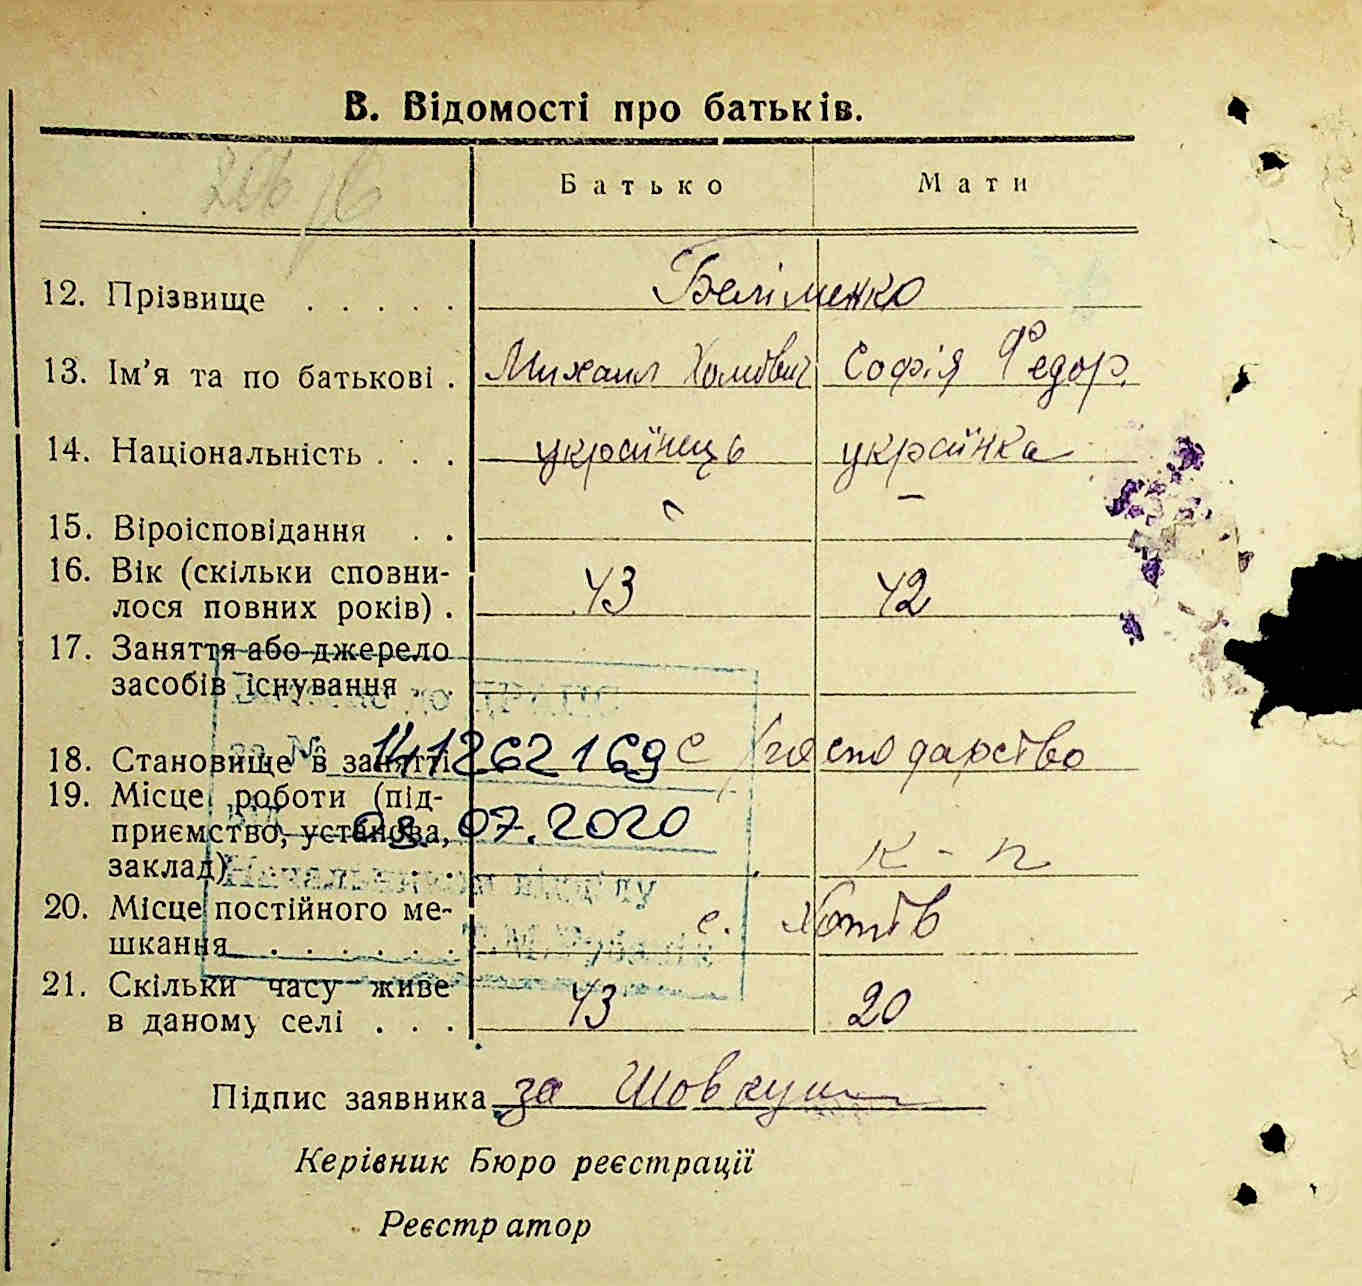 В. Відомості про батьків.
Батько Мати
12. Прізвище . . . . . Беліменко
13. Ім'я та по батькові . Михаил Софія Федор.
14. Національність . . . українець українка
15. Віроісповідання . . - -
16. Вік (скільки сповни-
лося повних років) . 43 42
17. Заняття або джерело
засобів існування . .
18. Становище в занятті с/господарство
№ 141262169
19. Місце роботи (під-
приємство, установа,
08.07.2020
заклад) к-п
20. Місце постійного ме-
шкання . . . . . . с. Хотів
21. Скільки часу живе
в даному селі . . . 43 20
Підпис заявника за
Керівник Бюро реєстрації
Реєстратор